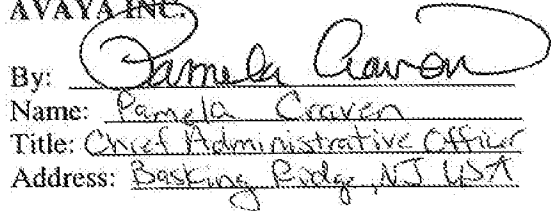 AVAYA INC.
By: Pamela Craven
Name: Pamela Craven
Title: Chief Administrative Officer
Address: Basking Ridge, NJ USA